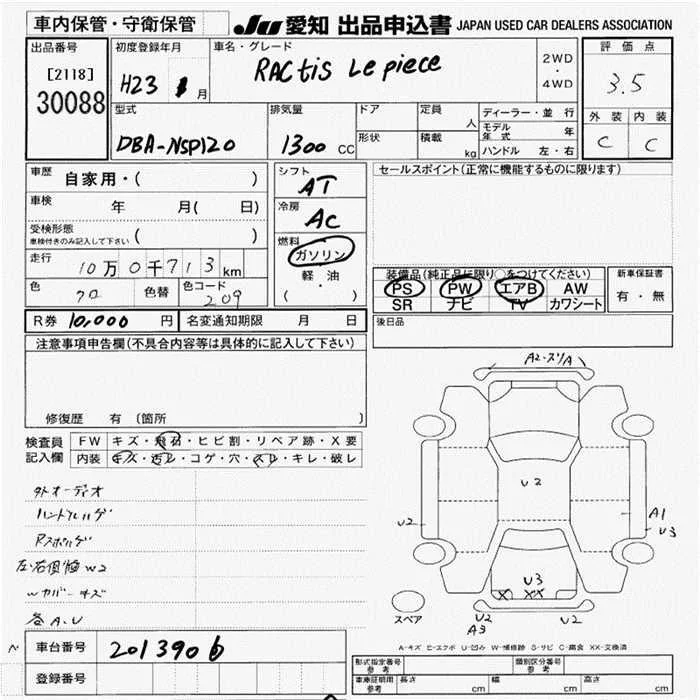 車内保管・守衛保管 JU 愛知 出品申込書 JAPAN USED CAR DEALERS ASSOCIATION
出品番号 初度登録年月 車名・グレード 評価点
[2118] H23 月 RACtis Le piece 2WD・4WD 3.5
30088
型式 排気量 ドア 定員 人 ディーラー・並行 外装 内装
DBA-NSP120 1300 CC 形状 積載 kg モデル年式 年 C C
ハンドル 左・右
車歴 自家用・( ) シフト AT セールスポイント(正常に機能するものに限ります)
車検 年 月( 日) 冷房 AC
受検形態 ( )
車検付きのみ記入して下さい
燃料 ガソリン
走行 10万0千713km 軽・油
装備品(純正品に限り○をつけてください) 新車保証書
色 色替 色コード 209 ( )
PS PW エアB AW 有・無
SR ナビ TV カワシート
R券 10,000 円 名変通知期限 月 日 後日品
注意事項申告欄(不具合内容等は具体的に記入して下さい)
修復歴 有 〔箇所 〕
検査員記入欄 FW キズ・飛石・ヒビ割・リペア跡・X要
内装 キズ・汚レ・コゲ・穴・スレ・キレ・破レ
外オーディオ
ハンドルハゲ
W2
Wカバーキズ
各A.U
A2-スリ/A
U2
U2
A1
U3
U3
X XX
スペア
U2
A3
U2
A-キズ E-エクボ U-凹み W-補修跡 S-サビ C-腐食 XX-交換済
車台番号 2013906
登録番号
形式指定番号 参考 類別区分番号 参考
車庫証明用 参考 長さ cm 幅 cm 高さ cm